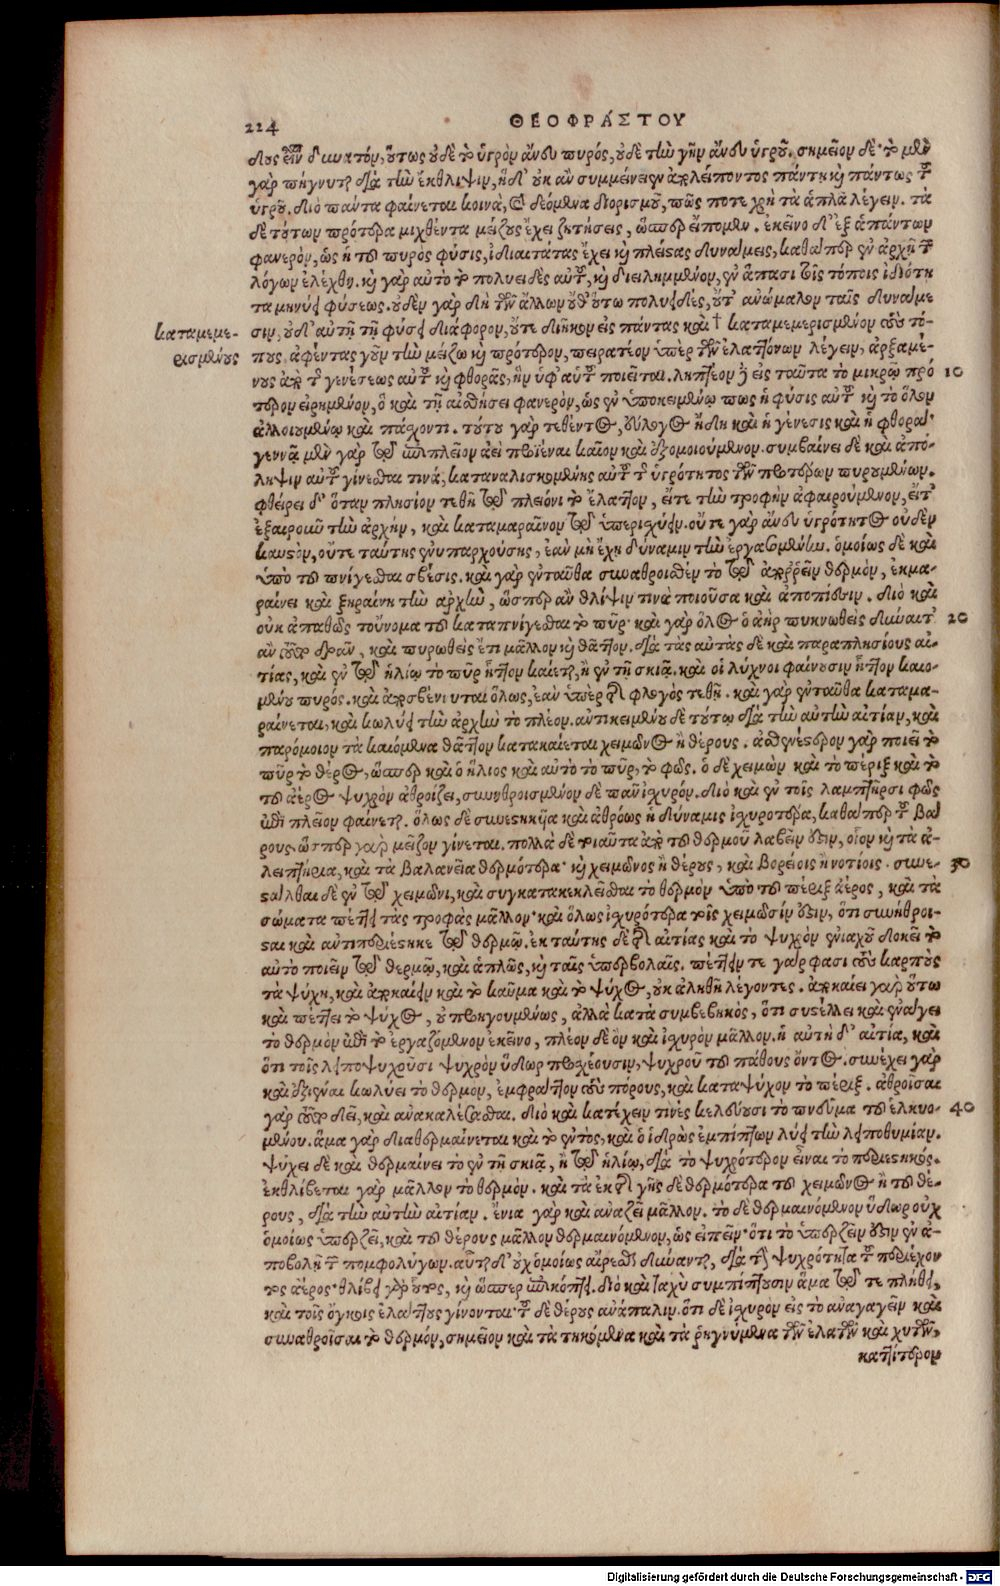 224
ΘΕΟΦΡΑΣΤΟΥ
λους εἶναι δυνατόν, οὕτως οὐδὲ τὸ ὑγρὸν ἄνευ πυρός, οὐδὲ τὴν γῆν ἄνευ ὑγροῦ. σημεῖον δέ· τὸ μὲν
γὰρ πήγνυται διὰ τὴν ἔκθλιψιν, ἡ δ' οὐκ ἂν συμμένειεν ἀπολείποντος πάντη καὶ πάντως τοῦ
ὑγροῦ. διὸ πάντα φαίνεται κοινὰ, καὶ δεόμενα διορισμοῦ, πῶς ποτε χρὴ τὰ ἁπλᾶ λέγειν. τὰ
δὲ τούτων πρότερα μιχθέντα μείζους ἔχει ζητήσεις, ὥσπερ εἴπομεν. ἐκεῖνο δ' ἐξ ἁπάντων
φανερὸν, ὡς ἡ τοῦ πυρὸς φύσις, ἰδιαιτάτας ἔχει καὶ πλείσας δυνάμεις, καθάπερ ἐν ἀρχῇ τοῦ
λόγων ἐλέχθη. καὶ γὰρ αὐτὸ τὸ πολυειδὲς αὐτοῦ, καὶ διειλημμένον, ἐν ἅπασι τοῖς τόποις ἰδιότη
τα μηνύει φύσεως. οὐδὲν γὰρ δὴ τῶν ἄλλων οὐδ' οὕτω πολυειδὲς, οὔτ' ἀνώμαλον ταῖς δυνάμε
σιν, οὐδ' αὐτῇ τῇ φύσει διάφορον, οὔτε διῆκον εἰς πάντας καὶ † καταμεμερισμένον τοὺς τό-
καταμεμε-
ρισμένους
πους, ἀφέντας γοῦν τὴν μείζω καὶ πρότερον, πειρατέον ὑπὲρ τῶν ἐλαττόνων λέγειν, ἀρξαμέ-
νους ἀπὸ τῆς γενέσεως αὐτοῦ καὶ φθορᾶς, ἣν ὑφ' αὑτοῦ ποιεῖται. ληπτέον δὲ εἰς ταῦτα τὸ μικρῷ πρό
10
τερον εἰρημένον, ὃ καὶ τῇ αἰσθήσει φανερὸν, ὡς ἐν ὑποκειμένῳ πως ἡ φύσις αὐτοῦ καὶ τὸ ὅλον
ἀλλοιουμένῳ καὶ πάσχοντι. τούτου γὰρ τεθέντος, εὔλογος ἤδη καὶ ἡ γένεσις καὶ ἡ φθορά·
γεννᾷ μὲν γὰρ τῷ ἐπιπλεῖον ἀεὶ προϊέναι καῖον καὶ ἐξομοιούμενον. συμβαίνει δὲ καὶ ἀπό-
ληψιν αὐτοῦ γίνεσθαι τινὰ, καταναλισκομένης αὐτοῦ τῆς ὑγρότητος τῶν προτέρων πυρουμένων.
φθείρει δ' ὅταν πλησίον τεθῇ τῷ πλείονι τὸ ἔλαττον, εἴτε τὴν τροφὴν ἀφαιρούμενον, εἴτ'
ἐξαιροῦν τὴν ἀρχὴν, καὶ καταμαραῖνον τῷ ὑπερισχύειν. οὔτε γὰρ ἄνευ ὑγρότητος οὐδὲν
καυσὸν, οὔτε ταύτης ἐνυπαρχούσης, ἐὰν μὴ ἔχῃ δύναμιν τὴν ἐργασομένην. ὁμοίως δὲ καὶ
ὑπὸ τοῦ πνίγεσθαι σβέσις. καὶ γὰρ ἐνταῦθα συναθροισθὲν τὸ τῷ ἀπορρεῖν θερμὸν, ἐκμα-
ραίνει καὶ ξηραίνη τὴν ἀρχὴν, ὥσπερ ἂν θλίψιν τινὰ ποιοῦσα καὶ ἀποπίεσιν. διὸ καὶ
οὐκ ἀπαθῶς τοὔνομα τοῦ καταπνίγεσθαι τὸ πῦρ· καὶ γὰρ ὅλος ὁ ἀὴρ πυκνωθεὶς δύναιτ'
20
ἂν τοῦτο δρᾶν, καὶ πυρωθεὶς ἔτι μᾶλλον καὶ θᾶττον. διὰ τὰς αὐτὰς δὲ καὶ παραπλησίους αἰ-
τίας, καὶ ἐν τῷ ἡλίῳ τὸ πῦρ ἧττον καίεται, ἢ ἐν τῇ σκιᾷ. καὶ οἱ λύχνοι φαίνουσιν ἧττον καιο-
μένου πυρός. καὶ ἀποσβέννυται ὅλως, ἐὰν ὑπὲρ τῆς φλογὸς τεθῇ. καὶ γὰρ ἐνταῦθα καταμα-
ραίνεται, καὶ κωλύει τὴν ἀρχὴν τὸ πλέον. ἀντικειμένου δὲ τούτῳ διὰ τὴν αὐτὴν αἰτίαν, καὶ
παρόμοιον τὰ καιόμενα θᾶττον κατακαίεται χειμῶνος ἢ θέρους. ἀσθενέσερον γὰρ ποιεῖ τὸ
πῦρ τὸ θέρος, ὥσπερ καὶ ὁ ἥλιος καὶ αὐτὸ τὸ πῦρ, τὸ φῶς. ὁ δὲ χειμὼν καὶ τὸ πέριξ καὶ τὸ
τοῦ ἀέρος ψυχρὸν ἀθροίζει, συνηθροισμένον δὲ πᾶν ἰσχυρόν. διὸ καὶ ἐν τοῖς λαμπτῆρσι φῶς
ἐπὶ πλεῖον φαίνεται. ὅλως δὲ συνεσηκυῖα καὶ ἀθρόως ἡ δύναμις ἰσχυροτέρα, καθάπερ τοῦ βά
ρους. ὥσπερ γὰρ μεῖζον γίνεται. πολλὰ δὲ τοιαῦτα ἀπὸ τοῦ θερμοῦ λαβεῖν ἐστιν, οἷον καὶ τὰ ἀ-
λειπτήρια, καὶ τὰ βαλανεῖα θερμότερα· καὶ χειμῶνος ἢ θέρους, καὶ βορείοις ἢ νοτίοις. συνε-
30
σάλθαι δὲ ἐν τῷ χειμῶνι, καὶ συγκατακεκλεῖσθαι τὸ θερμὸν ὑπὸ τοῦ πέριξ ἀέρος, καὶ τὰ
σώματα πέττει τὰς τροφὰς μᾶλλον· καὶ ὅλως ἰσχυρότερα τοῖς χειμῶσίν ἐστιν, ὅτι συνήθροι-
σαι καὶ ἀντιπεριέσηκε τῷ θερμῷ. ἐκ ταύτης δὲ τῆς αἰτίας καὶ τὸ ψυχρὸν ἐνιαχοῦ δοκεῖ τὸ
αὐτὸ ποιεῖν τῷ θερμῷ, καὶ ἁπλῶς, καὶ ταῖς ὑπερβολαῖς. πέττειν τε γάρ φασι τοὺς καρποὺς
τὰ ψύχη, καὶ ἀποκαίειν καὶ τὸ καῦμα καὶ τὸ ψῦχος, οὐκ ἀληθῆ λέγοντες. ἀποκαίει γὰρ οὕτω
καὶ πέττει τὸ ψῦχος, οὐ προηγουμένως, ἀλλὰ κατὰ συμβεβηκὸς, ὅτι συσέλλει καὶ συνάγει
τὸ θερμὸν ἐπὶ τὸ ἐργαζόμενον ἐκεῖνο, πλέον δὲ ὂν καὶ ἰσχυρὸν μᾶλλον. ἡ αὐτὴ δ' αἰτία, καὶ
ὅτι τοῖς λειποψυχοῦσι ψυχρὸν ὕδωρ προσχέουσιν, ψυχροῦ τοῦ πάθους ὄντος. συνέχει γὰρ
καὶ ἐξιέναι κωλύει τὸ θερμὸν, ἐμφράττον τοὺς πόρους, καὶ καταψῦχον τὸ πέριξ. ἀθροῖσαι
γὰρ τοῦτο δεῖ, καὶ ἀνακαλέσασθαι. διὸ καὶ κατέχειν τινὲς κελεύουσι τὸ πνεῦμα τοῦ ἑλκυο-
40
μένου. ἅμα γὰρ διαθερμαίνεται καὶ τὸ ἐντὸς, καὶ ὁ ἱδρὼς ἐμπίπτων λύει τὴν λειποθυμίαν.
ψύχει δὲ καὶ θερμαίνει τὸ ἐν τῇ σκιᾷ, ἢ τῷ ἡλίῳ, διὰ τὸ ψυχρότερον εἶναι τὸ περιεσηκός.
ἐκθλίβεται γὰρ μᾶλλον τὸ θερμόν. καὶ τὰ ἐκ τῆς γῆς δὲ θερμότερα τοῦ χειμῶνος ἢ τοῦ θέ-
ρους, διὰ τὴν αὐτὴν αἰτίαν. ἔνια γὰρ καὶ ἀναζεῖ μᾶλλον. τὸ δὲ θερμαινόμενον ὕδωρ οὐχ
ὁμοίως ὑπερζεῖ, καὶ τοῦ θέρους μᾶλλον θερμαινόμενον, ὡς εἰπεῖν· ὅτι τὸ ὑπερζεῖν ἐστιν ἐν ἀ-
ποβολῇ τῶν πομφολύγων. αὗται δ' οὐχ ὁμοίως αἴρεσθαι δύνανται, διὰ τὴν ψυχρότητα τοῦ περιέχον
τος ἀέρος· θλίβει γὰρ οὗτος, καὶ ὥσπερ ἐπικόπτει. διὸ καὶ ταχὺ συμπίπτουσιν ἅμα τῷ τε πλήθει,
καὶ τοῖς ὄγκοις ἐλάττους γίνονται· τοῦ δὲ θέρους ἀνάπαλιν. ὅτι δὲ ἰσχυρὸν εἰς τὸ ἀναγαγεῖν καὶ
συναθροῖσαι τὸ θερμὸν, σημεῖον καὶ τὰ τηκόμενα καὶ τὰ ῥηγνύμενα τῶν ἐλατῶν καὶ χυτῶν,
καττίτερον
Digitalisierung gefördert durch die Deutsche Forschungsgemeinschaft - DFG